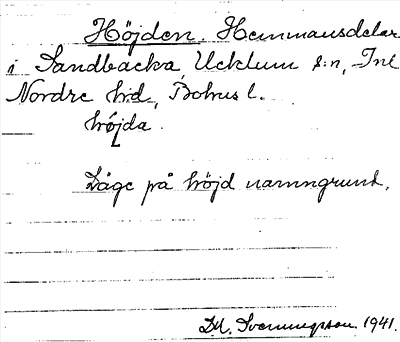 Höjden. Hemmansdelar
i Sandbacka, Ucklum s:n, Inl.
Nordre hrd., Bohusl.
höjda.
Läge på höjd namngrund.
D.M. Svenningsson 1941.